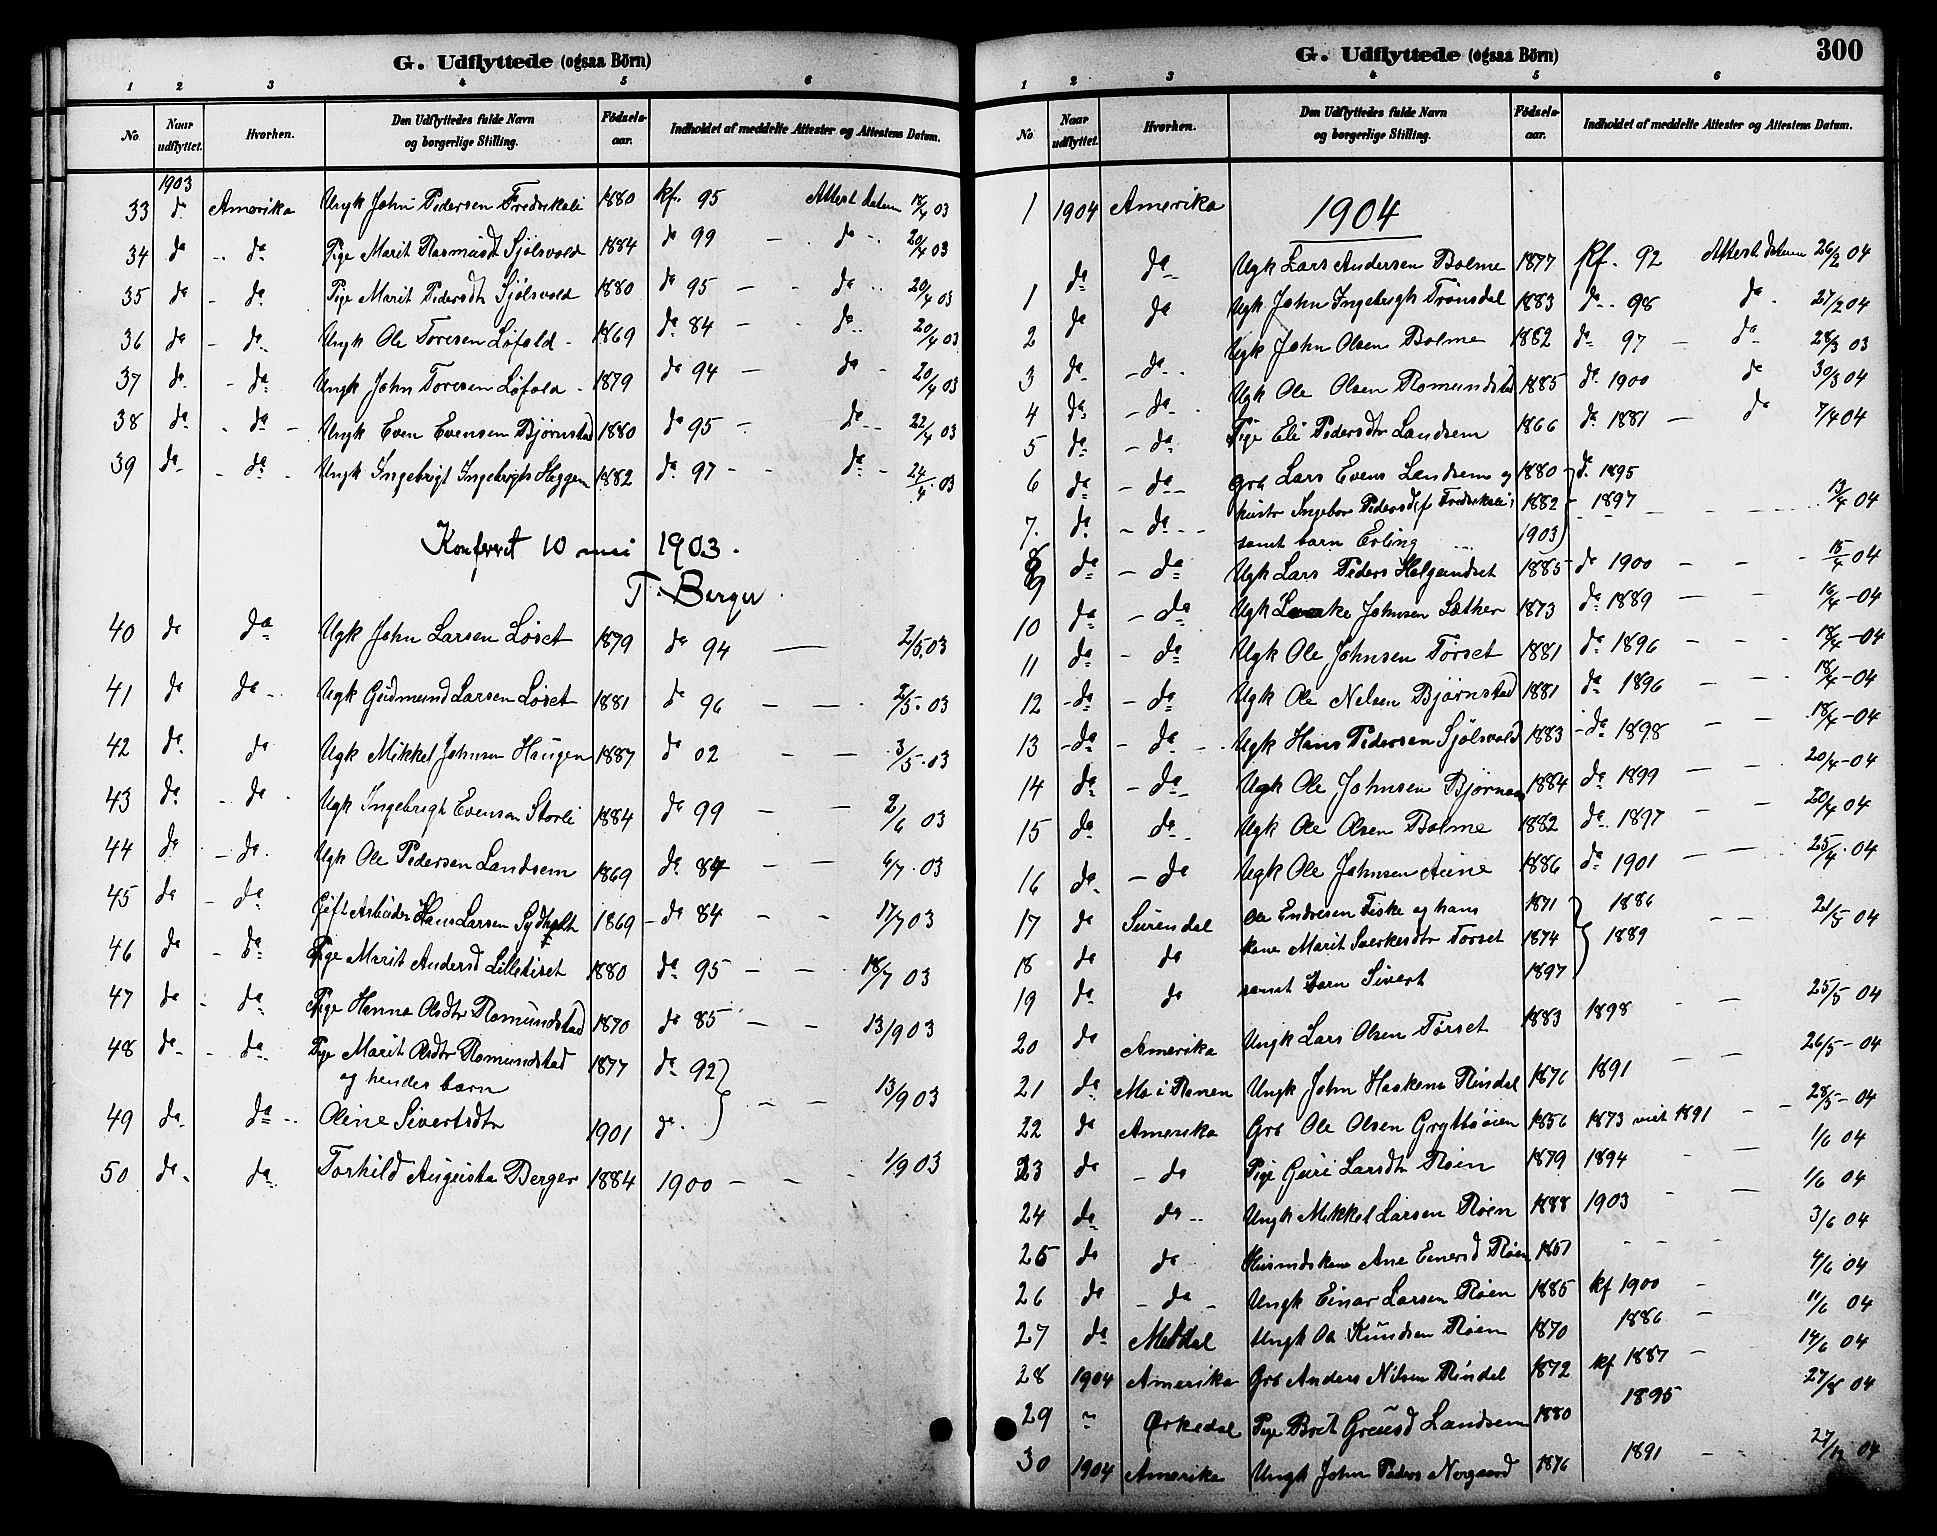 G. Udflyttede (ogsaa Börn)
1 2 3 4 5 6
No. Naar udflyttet. Hvorhen. Den Udflyttedes fulde Navn og borgerlige Stilling. Födsels-aar. Indholdet af meddelte Attester og Attestens Datum.
1903
33 do Amerika Ungk John Pedersen Fredriksli 1880 kf. 95 Attest datum 18/4 03
34 do do Pige Marit Rasmusdt Sjölsvold 1884 do 99 do 20/4 03
35 do do Pige Marit Pedersdtr Sjölsvold 1880 do 95 do 20/4 03
36 do do Ungk Ole Toresen Löfald 1869 do 84 do 20/4 03
37 do do Ungk John Toresen Löfald 1879 do 94 do 20/4 03
38 do do Ungk Even Evensen Bjørnstad 1880 do 95 do 22/4 03
39 do do Ungk Ingebrigt Ingebrigts Heggem 1882 do 97 do 24/4 03
Konferert 10 mai 1903.
T. Berger
40 do do Ugk John Larsen Löset 1879 do 94 2/5 03
41 do do Ugk Gudmund Larsen Löset 1881 do 96 2/5 03
42 do do Ugk Mikkel Johnsen Haugen 1887 do 02 3/5 03
43 do do Ugk Ingebrigt Evensen Storli 1884 do 99 2/6 03
44 do do Ugk Ole Pedersen Landsem 1869 do 84 6/7 03
45 do do Gift Arbeider Hans Larsen 1869 do 84 17/7 03
46 do do Pige Marit Andersd 1880 do 95 18/7 03
47 do do Pige Hanna Olsdtr Romundstad 1870 do 85 13/9 03
48 do do Pige Marit Olsdtr Romundstad 1877 do 92
og hendes barn 13/9 03
49 do do Oline Sivertsdtr 1901 do
50 do do Torhild Augusta Berger 1884 1900 1/9 03
G. Udflyttede (ogsaa Börn) 300
1 2 3 4 5 6
No Naar udflyttet. Hvorhen. Den Udflyttedes fulde Navn og borgerlige Stilling. Födsels-aar. Indholdet af meddelte Attester og Attestens Datum.
1 1904 Amerika 1904
do do Ugk Lars Andersen Bolme 1877 Kf. 92 Attest datum 26/2 04
1 do do Ugk John Ingebrigts Trønsdal 1883 do 98 do 27/2 04
2 Ugk John Olsen Bolme 1882 do 97 do 28/3 03
3 do do Ugk Ole Olsen Romundstad 1885 do 1900 do 30/3 04
4 do do Pige Eli Pedersdtr Landsem 1866 do 1881 do 7/4 04
5 do do
6 do do Grb Lars Evens Landsem og 1880 do 1895
hustr Ingebor Pedersd f Fredriksli 1882 1897 13/4 04
7. do do samt barn Erling 1903
9 do do Ugk Lars Peders Helgetndset 1885 do 1900 15/4 04
10 do do Ugk Johnsen Sæther 1873 do 1889 16/4 04
11 do do Ugk Ole Johnsen Törset 1881 do 1896 18/4 04
12 do do Ugk Ole Nelsen Bjørnstad 1881 do 1896 18/4 04
13 do do Ugk Hans Pedersen Sjölsvold 1883 do 1898 18/4 04
14 do do Ugk Ole Johnsen Bjørnaas 1884 do 1899 20/4 04
15 do do Ugk Ole Olsen Bolme 1882 do 1897 20/4 04
16 do do Ugk Ole Johnsen Aune 1886 do 1901 25/4 04
17 do Surendal Ole Endresen Fiske og hans 1871 1886 21/5 04
18 do do kone Marit Sverkesdtr Torset 1874 1889
19 do do samt barn Sivert 1897
20 do Amerika Ungk Lars Olsen Törset 1883 1898 25/5 04
21 do Mo i Ranen Ungk John Haakens Rindal 1876 1891 26/5 04
22 do Amerika Grb Ole Olsen Gryttöien 1856 1873 viet 1891 28/5 04
23 do do Pige Guri Larsdtr Røen 1879 1894 1/6 04
24 do do Ungk Mikkel Larsen Røen 1888 1903 1/6 04
25 do do Husmdskone Ane Einersd Røen 1857 3/6 04
26 do do Ungk Einar Larsen Røen 1885 kf 1900 4/6 04
27 do Meldal Ungk Ole Knudsen Røen 1870 1886 11/6 04
28 1904 Amerika Grb Anders Nilsen Rindal 1872 kf 1887 14/6 04
29 " Ørkedal Pige Brit Landsem 1880 1895 27/8 04
30 1904 Amerika Ungk John Peders Norgaard 1876 1891 27/12 04